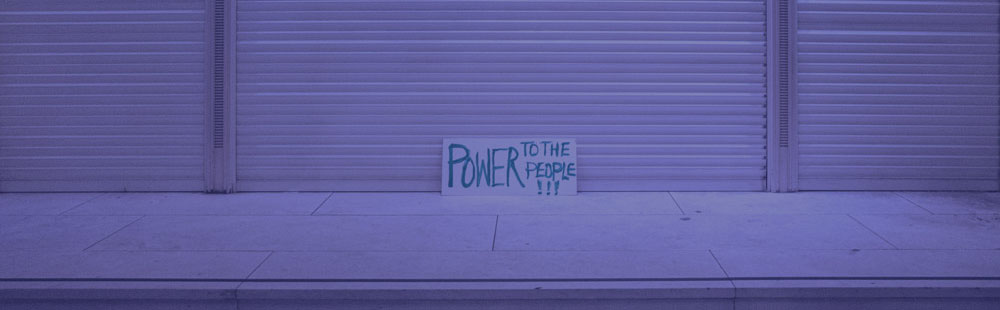 POWER TO THE
PEOPLE
!!!